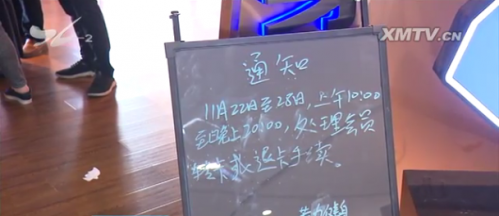 XMTV.CN
-2
通知
11月22日至28日,上午10:00
至晚上20:00,处理会员
转卡或退卡手续。